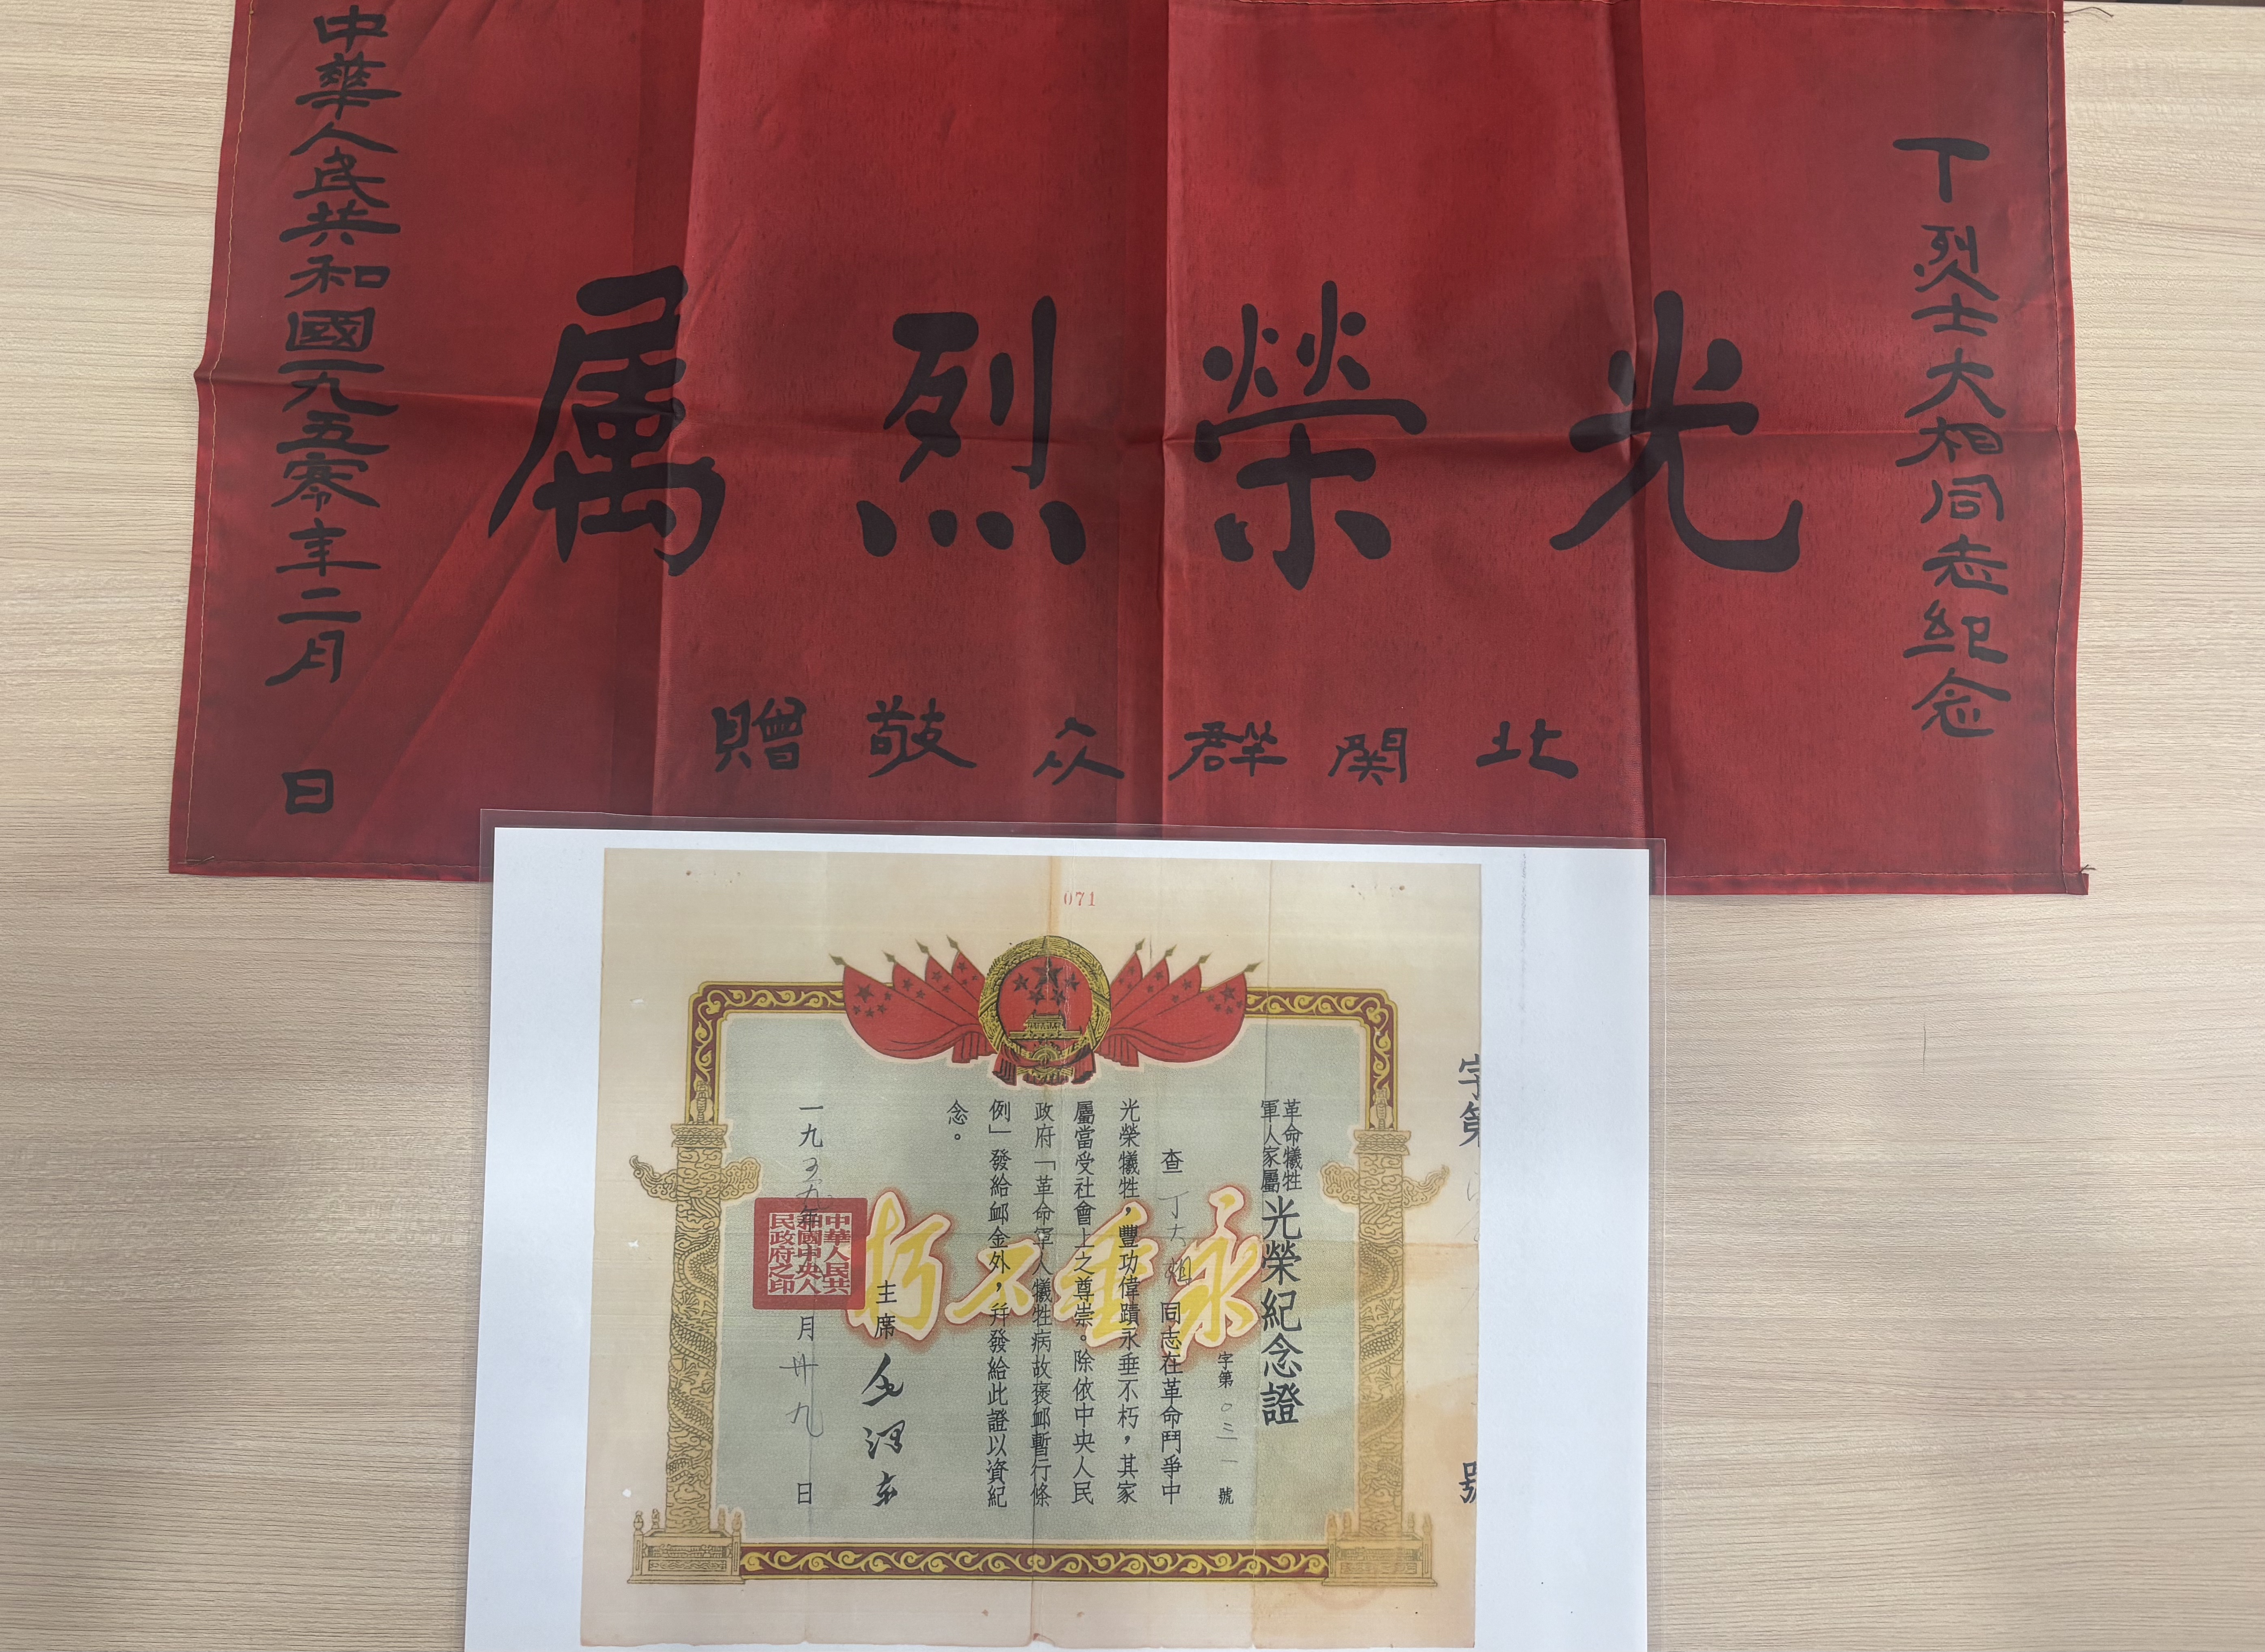 丁烈士大相同志纪念
光榮烈属
北関群众敬贈
中華人民共和國一九五零年二月　日
071
字第
號
革命犧牲
軍人家屬
光榮紀念證
字第〇三一號
查丁大相同志在革命鬥爭中
光榮犧牲，豐功偉蹟永垂不朽，其家
屬當受社會上之尊崇。除依中央人民
政府「革命軍人犧牲病故褒卹暫行條
例」發給卹金外，幷發給此證以資紀
念。
永垂不朽
主席 毛澤东
一九五九年 月卅九日
中華人民共
和國中央人
民政府之印